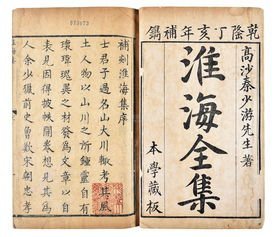 乾隆丁亥年補鐫
高沙秦少游先生著
淮海全集
本學藏板
補刻淮海集序
士君子過名山大川輒考其風
土人物以山川之所鍾靈自有
異之材發為文章以自
表見因得披帙開卷想見其為
人余少獵前史嘗歎宋朝忠孝